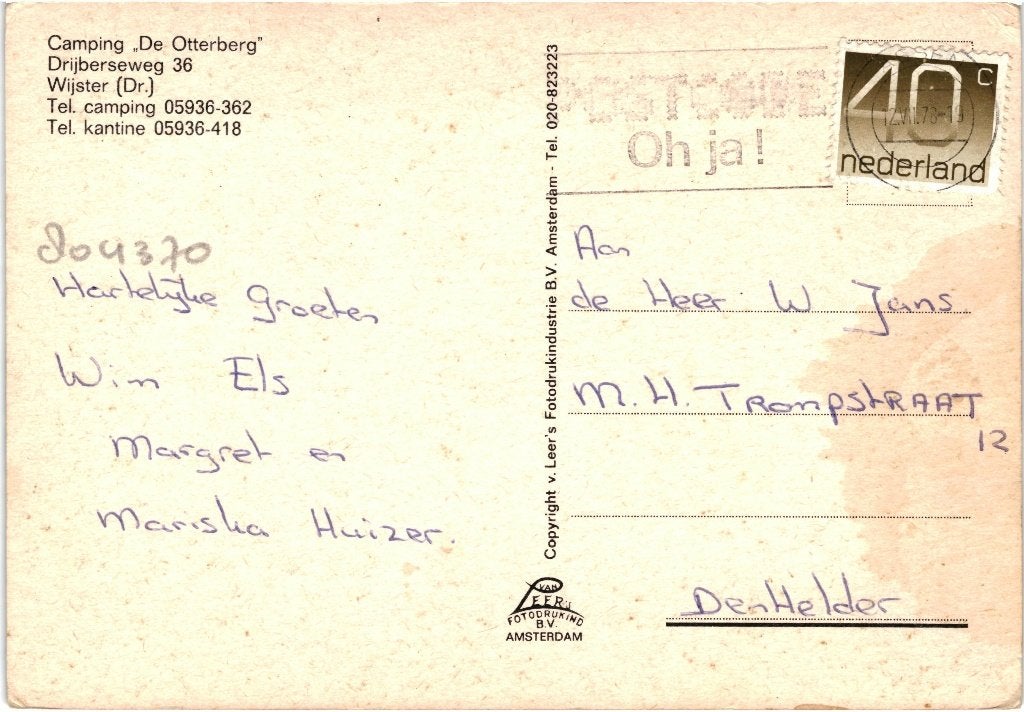 Camping „De Otterberg"
Drijberseweg 36
Wijster (Dr.)
Tel. camping 05936-362
Tel. kantine 05936-418
804370
Hartelijke Groeten
Wim Els
Margret en
Mariska Huizer.
Copyright v. Leer's Fotodrukindustrie B.V. Amsterdam - Tel. 020-823223
VAN
LEER's
FOTODRUKIND
B.V.
AMSTERDAM
POSTCODE
Oh ja!
40 c
nederland
Aan
de Heer W Jans
M. H. TROMPSTRAAT
12
Den Helder